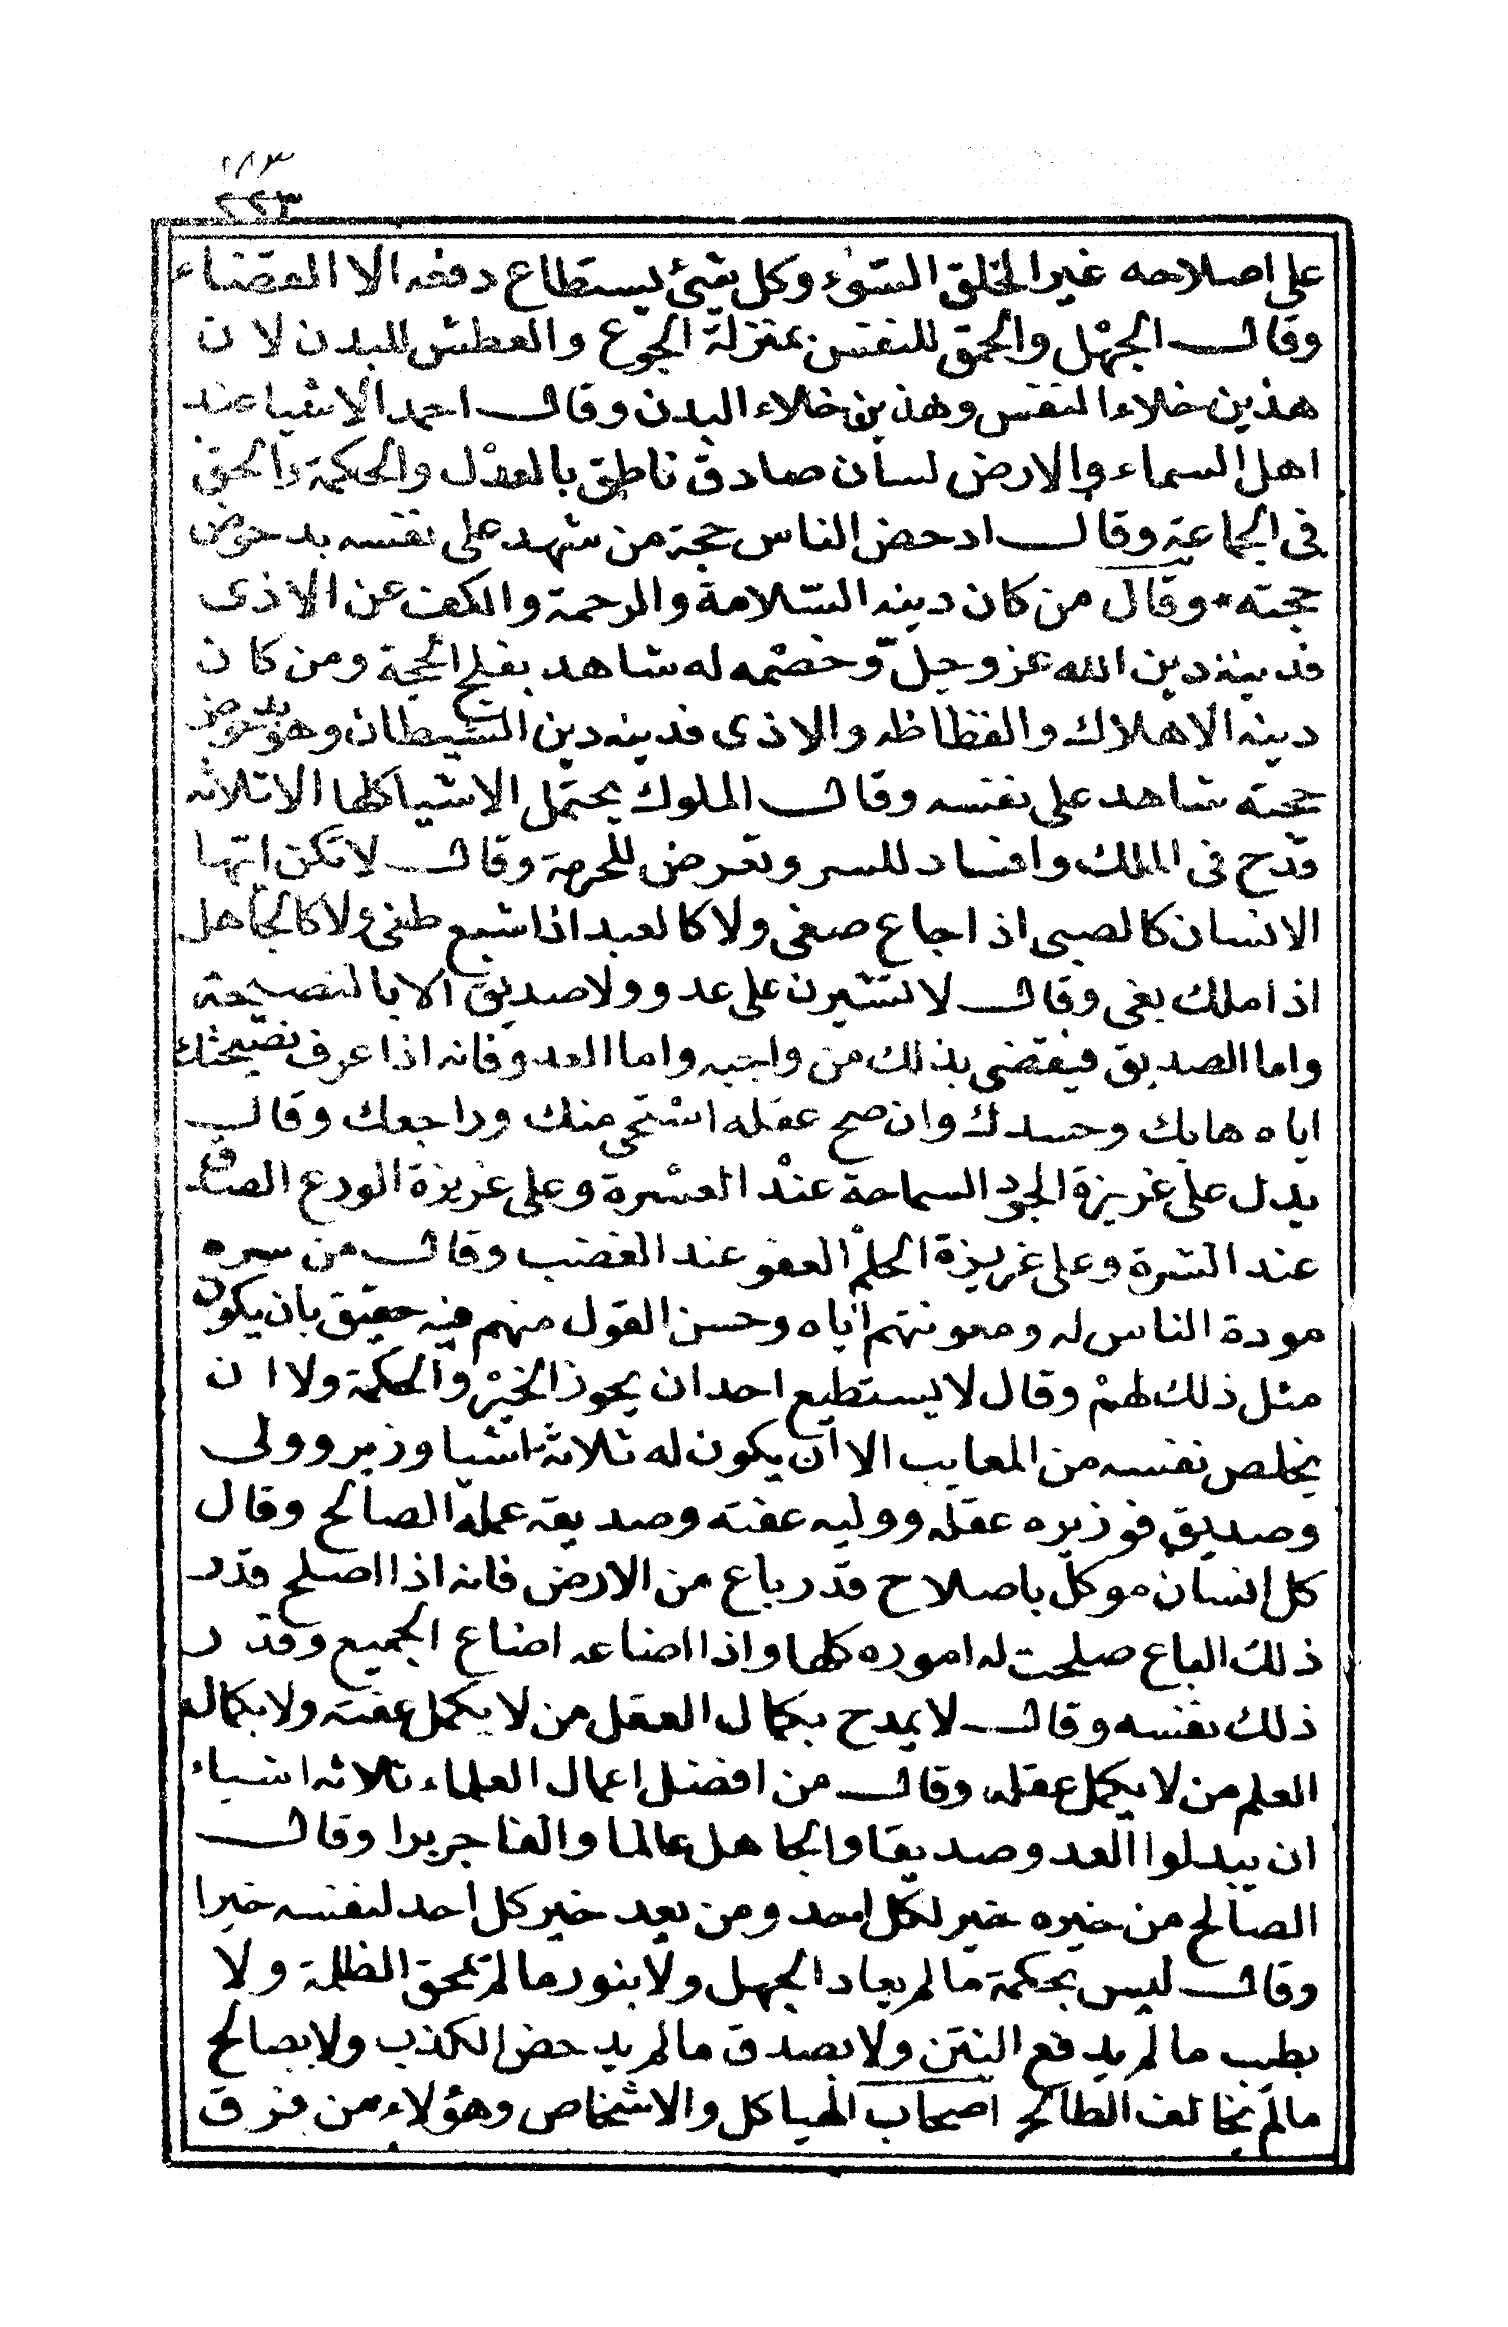 ١٨٣
٢٢٣
على اصلاحه غير الخلق السوء وكل شئ يستطاع دفعه الا القضاء
وقال الجهل والحمق للنفس بمنزلة الجوع والعطش للبدن لان
هذين خلاء النفس وهذين خلاء البدن وقال احمد الاشيا عند
اهل السماء والارض لسان صادق ناطق بالعدل والحكمة والحق
فى الجماعة وقال ادحض الناس حجة من شهد على نفسه بدحوض
حجته * وقال من كان دينه السلامة والرحمة والكف عن الاذى
فدينه دين الله عز وجل وخصمه له شاهد بفلج الحجة ومن كان
دينه الاهلاك والفظاظه والاذى فدينه دين الشيطان وهو بدحوض
حجته شاهد على نفسه وقال الملوك يحتمل الاشيا كلها الا ثلاثه
قدح فى الملك وافساد للسر وتعرض للحرمة وقال لا تكن ايها
الانسان كالصبى اذا جاع صغى ولا كالعبد اذا شبع طغى ولا كالجاهل
اذا ملك بغى وقال لا تشيرن على عدو ولا صديق الا بالنصيحة
واما الصديق فيقضى بذلك من واجبه واما العدو فانه اذا عرف نصيحتك
اياه هابك وحسدك وان صح عقله استحى منك وراجعك وقال
يدل على غريزة الجود السماحة عند العسرة وعلى غريزة الورع الصدق
عند الشرة وعلى غريزة الحلم العفو عند الغضب وقال من سره
مودة الناس له ومعونتهم اياه وحسن القول منهم فيه حقيق بان يكون
مثل ذلك لهم وقال لا يستطيع احد ان يحوز الخير والحكمة ولا ان
يخلص نفسه من المعايب الا ان يكون له ثلاثة اشيا وزير وولى
وصديق فوزيره عقله ووليه عفته وصديقه عمله الصالح وقال
كل انسان موكل باصلاح قدر باع من الارض فانه اذا اصلح قدر
ذلك الباع صلحت له اموره كلها واذا اضاعه اضاع الجميع وقدر
ذلك نفسه وقال لا يمدح بكمال العقل من لا يكمل عفته ولا بكمال
العلم من لا يكمل عقله وقال من افضل اعمال العلماء ثلاثه اشياء
ان يبدلوا العدو صديقا والجاهل عالما والفاجر برا وقال
الصالح من خيره خير لكل احد ومن يعد خير كل احد لنفسه خيرا
وقال ليس بحكمة ما لم يعاد الجهل ولا بنور ما لم يمحق الظلمة ولا
بطيب ما لم يدفع النتن ولا بصدق ما لم يدحض الكذب ولا بصالح
ما لم يخالف الطالح اصحاب الهياكل والاشخاص وهؤلاء من فرق